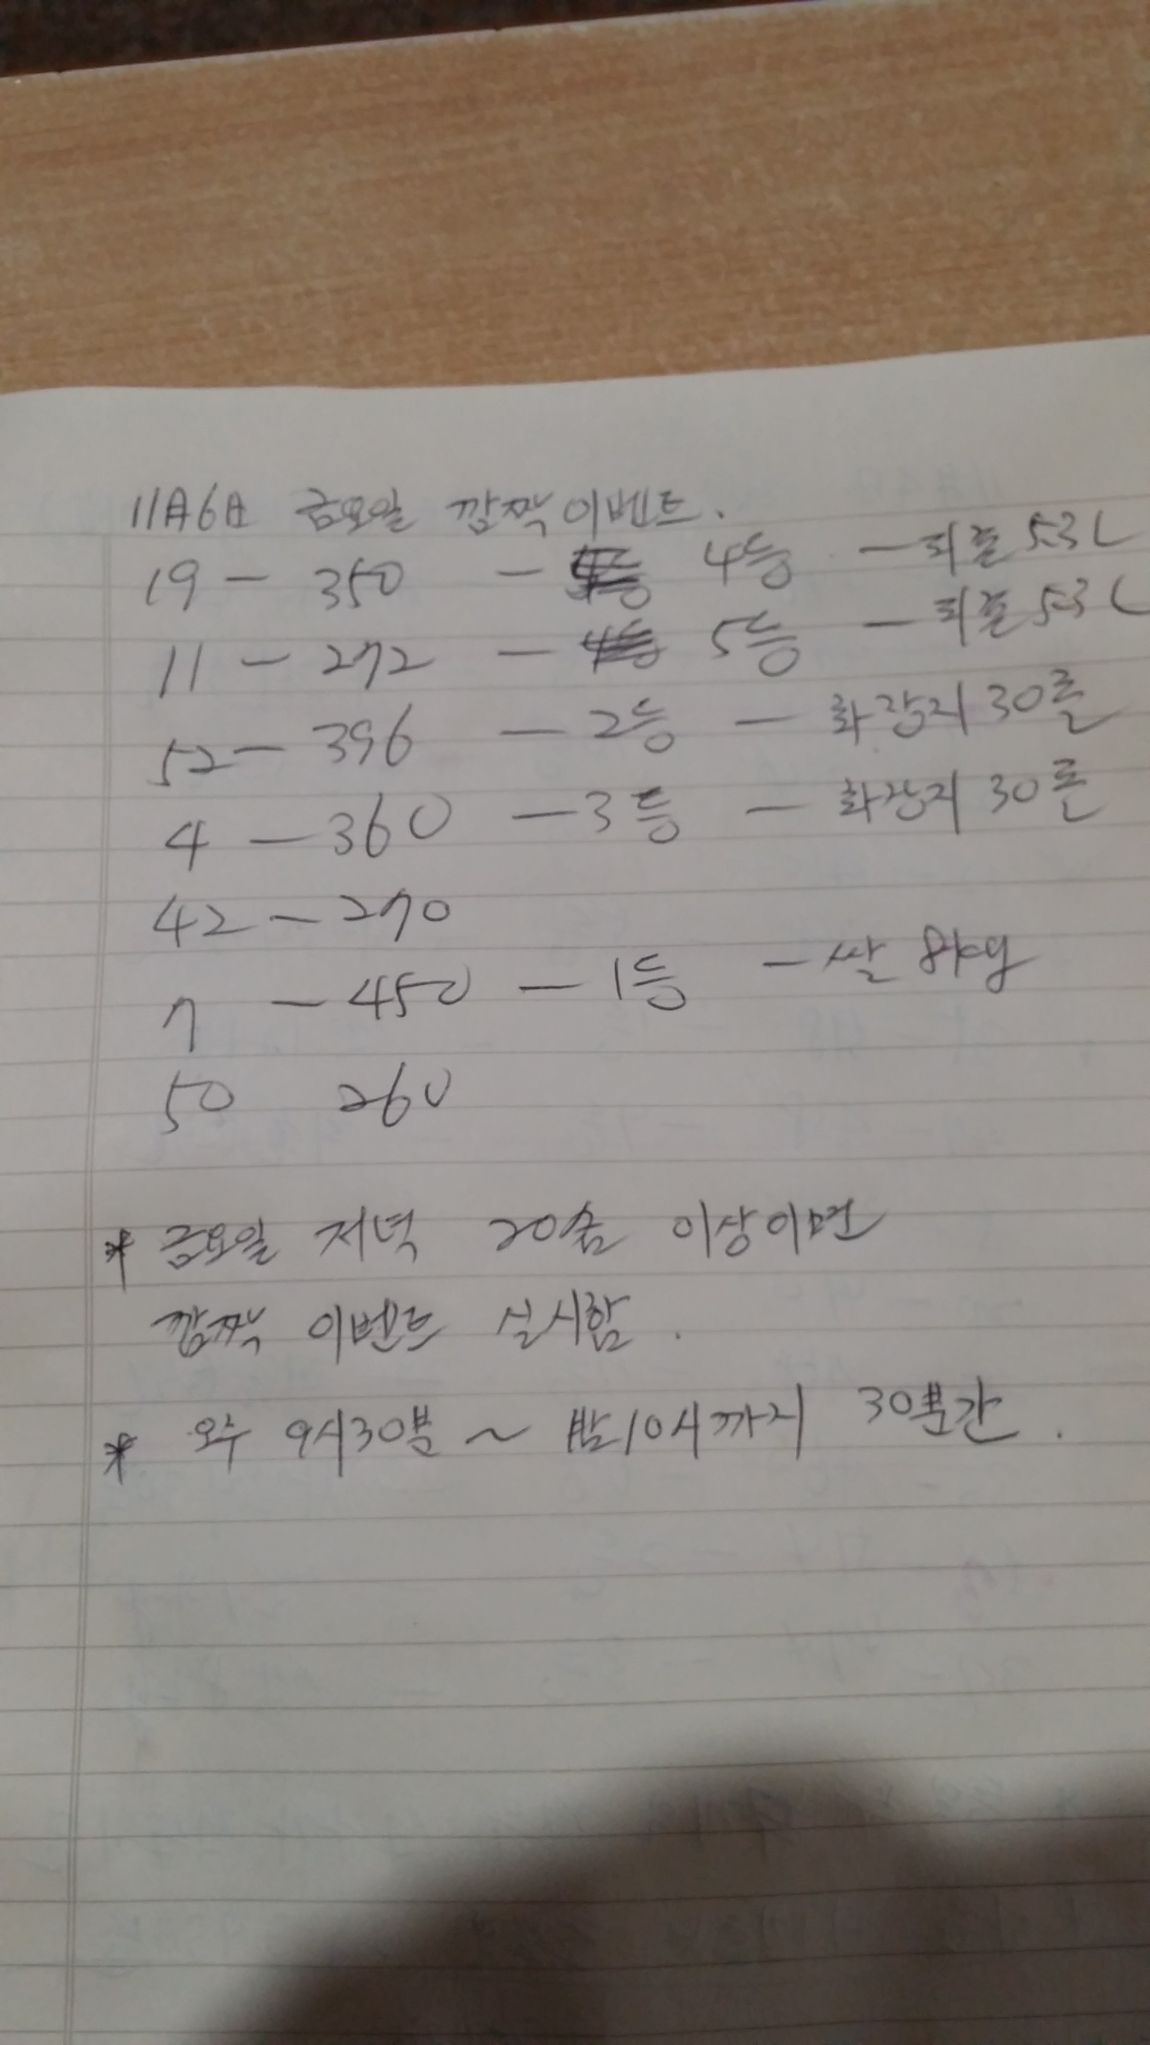 11月6日 금요일 깜짝이벤트.
19 - 350 - 4등 - 퍼퓸 5.3L
11 - 272 - 5등 - 퍼퓸 5.3L
52 - 396 - 2등 - 화장지 30롤
4 - 360 - 3등 - 화장지 30롤
42 - 270
7 - 450 - 1등 - 쌀 8kg
50 260
* 금요일 저녁 20숨 이상이면
깜짝 이벤트 실시함.
* 오후 9시30분 ~ 밤10시까지 30분간.